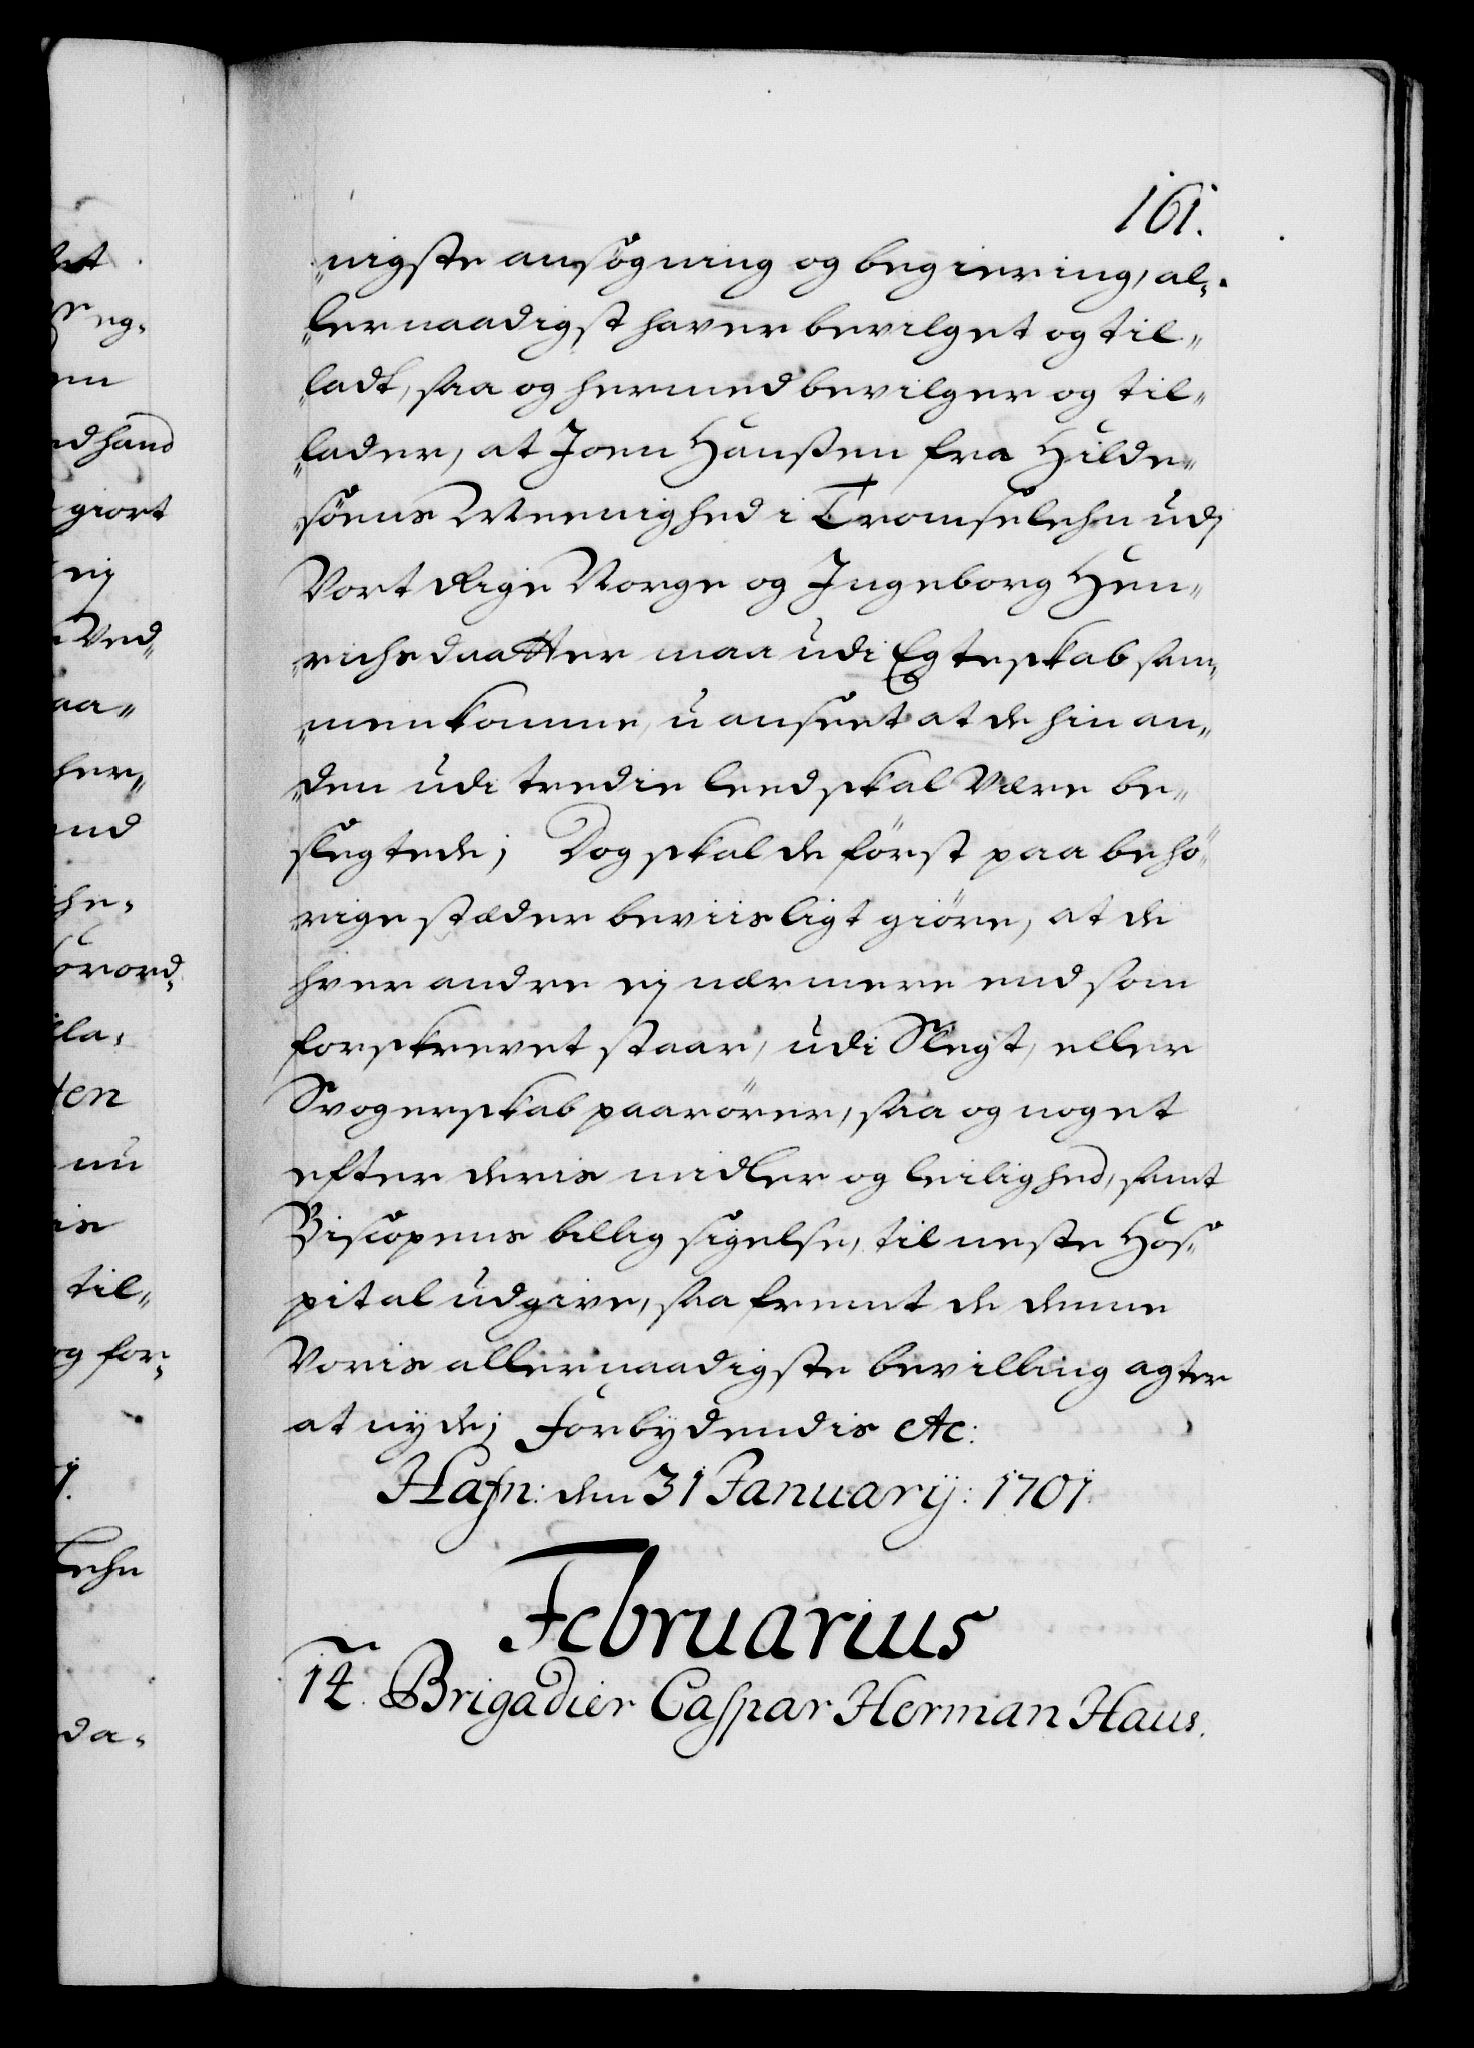 161.
"nigste ansögning og begiering, al,,
"lernaadigst haver bevilget og til,,
"ladt, saa og hermed bevilger og til,,
"lader, at Joen Hanßen fra Hilde,,
"söens Meenighed i Tromselehn udj
Vort Rige Norge og Ingeborg Hen,,
"richsdaatter maa udi Egteskab sam,,
"menkomme, uanseet at de hin an,,
"den udi tredie leed skal være be,,
slegtede; Dog skal de först paa behö,,
"rige stæder beviisligt giöre, at de
hver andre ej nærmere end som
forskrevet staar, udi Slegt, eller
Svogerskab paarörer, saa og noget
efter deris midler og leilighed, samt
Biscopens billig sigelse, til neste Hos,,
pital udgive, saa fremt de denne
Voris allernaadigste bevilling agter
at nyde; Forbydendis etc:
Hafn: den 31 Januarij: 1701.
Februarius
14. Brigadier Caspar Herman Haus.
eg,
en
dhand
giort
ej
Ved,,
aa,,
her,,
end
he,
forord,,
lla,
ten
nu
is
til,,
og for,,
1.
Lehn
da,